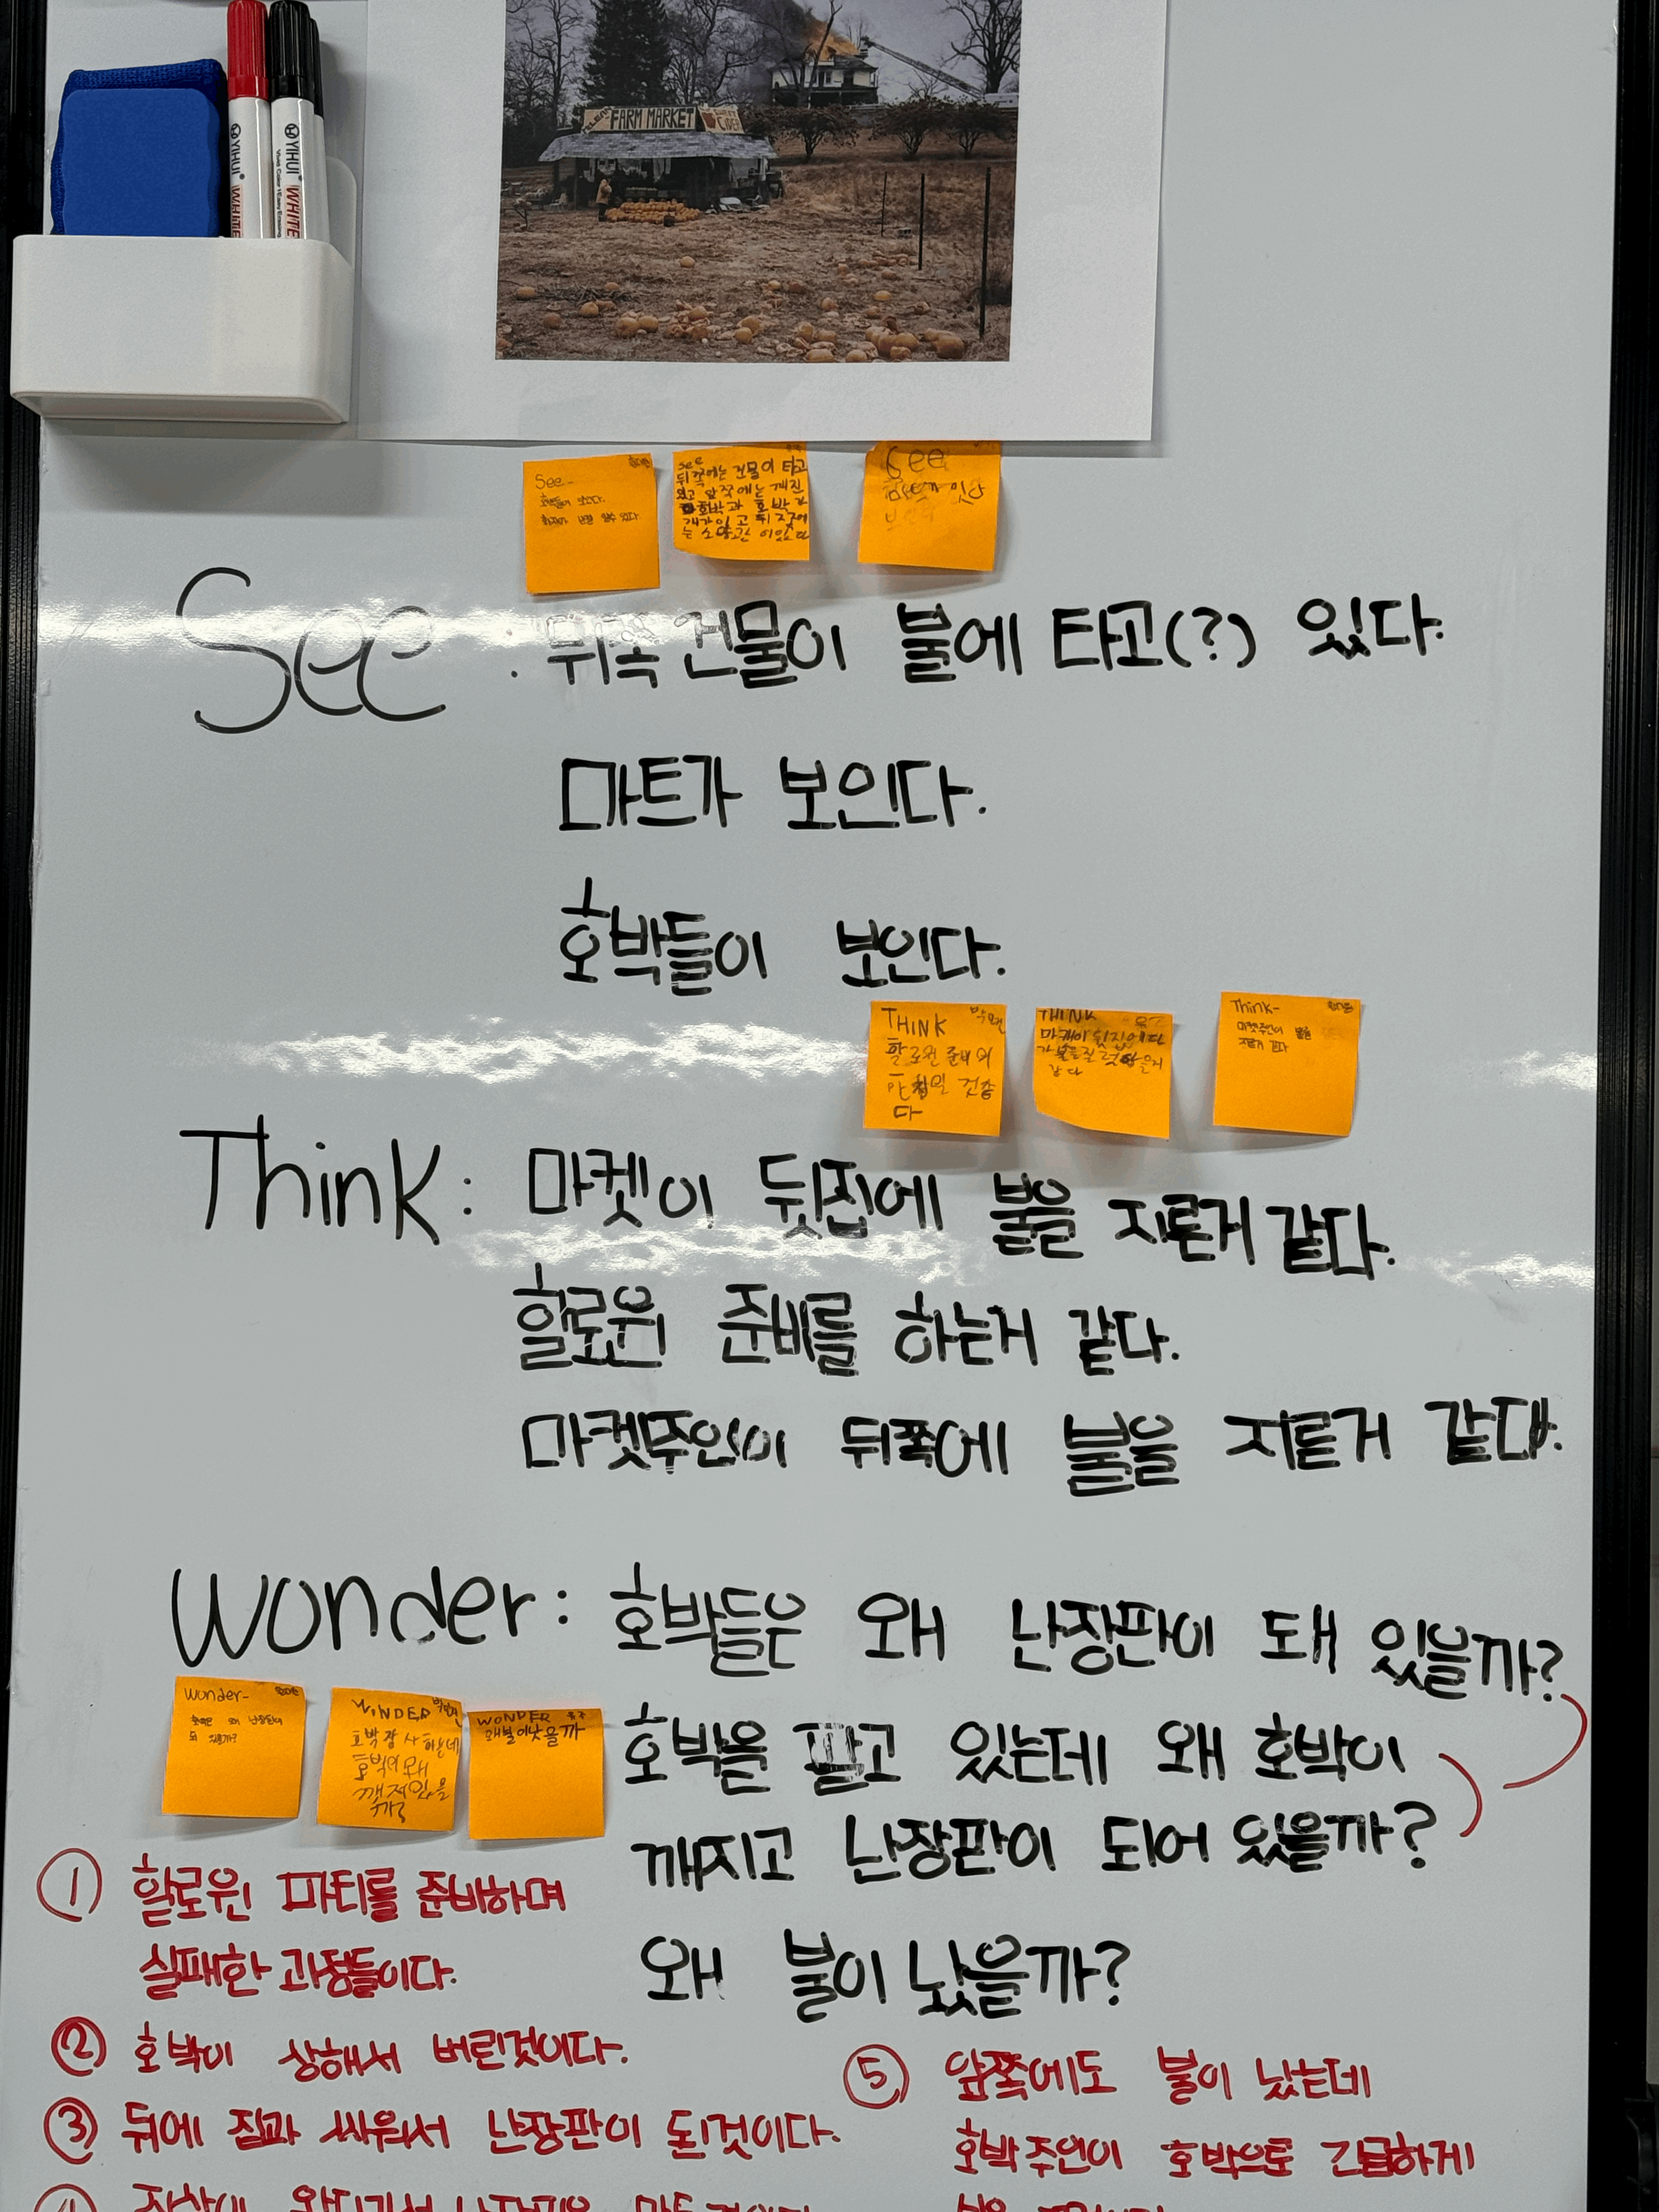 YIHUI
WHITE
YIHUI
WHITE
FARM MARKET
CIDER
See-
호박들이 보인다.
see
뒤쪽에는 건물이 타고
있고 앞쪽에는 깨진
호박과 호박 가
See
See . 뒤쪽 건물이 불에 타고(?) 있다.
마트가 보인다.
호박들이 보인다.
THINK
할로윈 준비의
THINK
Think-
마켓주인이 불을
지른거 같다
Think : 마켓이 뒷집에 불을 지른거 같다.
할로윈 준비를 하는거 같다.
마켓주인이 뒤쪽에 불을 지른거 같다.
Wonder : 호박들은 왜 난장판이 돼 있을까?
Wonder-
호박은 왜 난장판이
WINDER
호박장사하는데
호박이 왜
깨져있을
까?
WONDER
왜불이낫을까
호박을 팔고 있는데 왜 호박이
깨지고 난장판이 되어 있을까?
왜 불이 났을까?
① 할로윈 파티를 준비하며
실패한 과정들이다.
② 호박이 상해서 버린것이다.
③ 뒤에 집과 싸워서 난장판이 된것이다.
⑤ 앞쪽에도 불이 났는데
호박주인이 호박으로 긴급하게